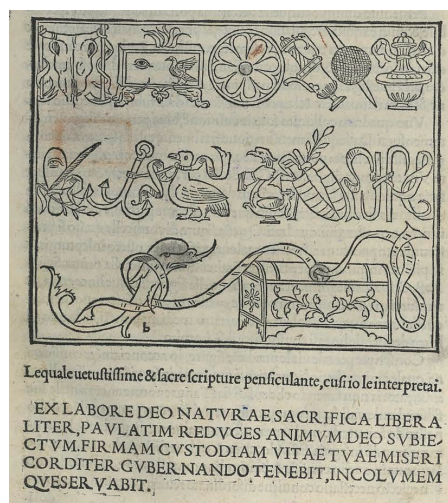 b
Lequale uetustissime & sacre scripture pensiculante, cusi io le interpretai.
EX LABORE DEO NATVRAE SACRIFICA LIBERA
LITER, PAVLATIM REDVCES ANIMVM DEO SVBIE
CTVM. FIRMAM CVSTODIAM VITAE TVAE MISERI
CORDITER GVBERNANDO TENEBIT, INCOLVMEM
QVESERVABIT.